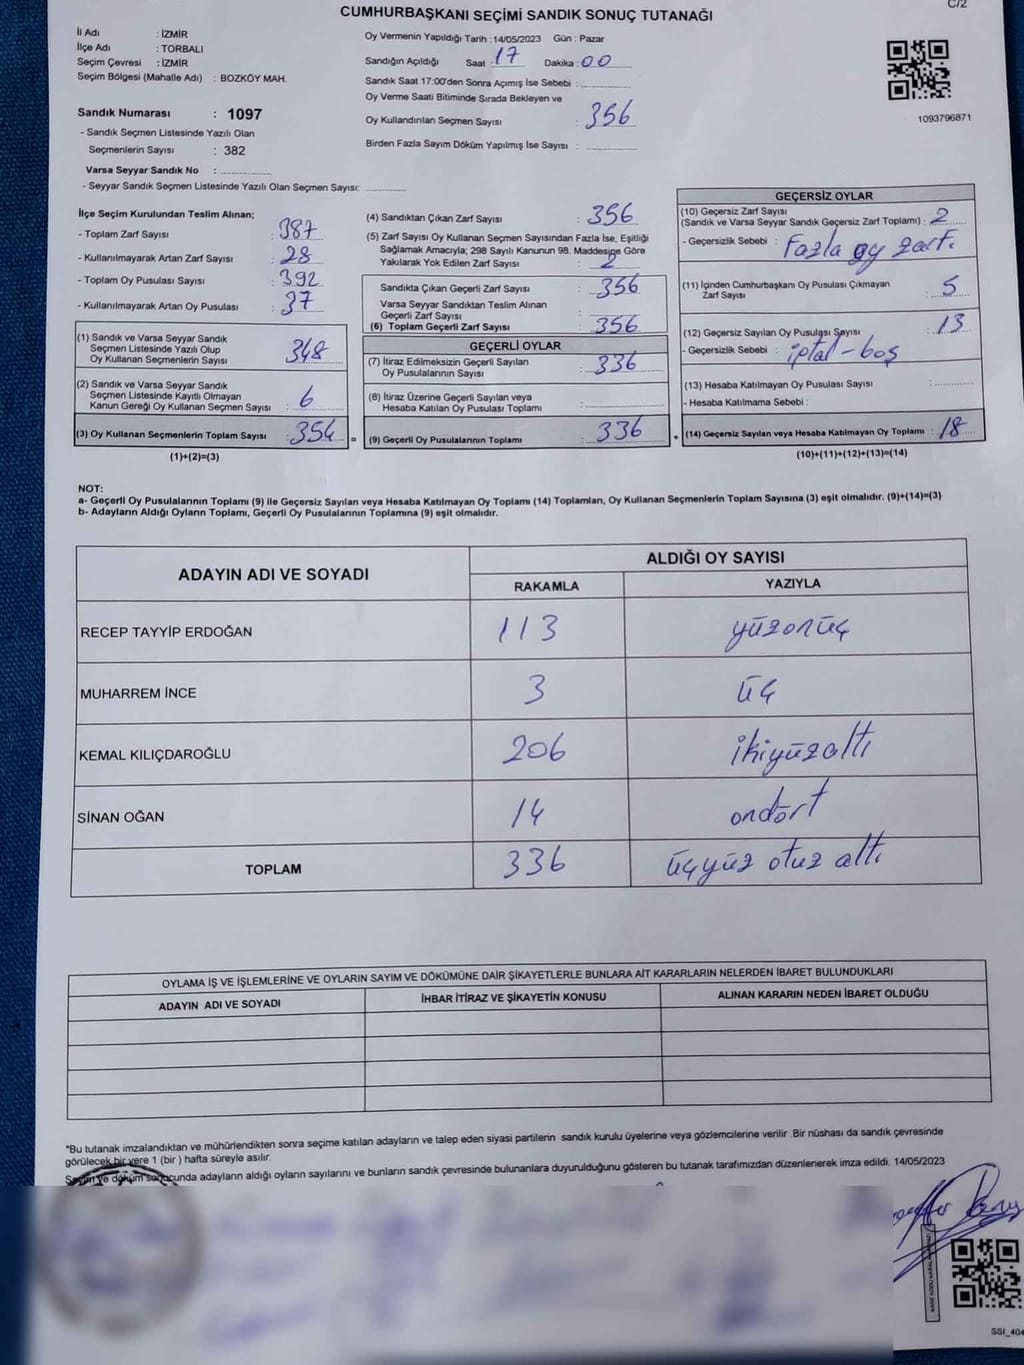 C/2
CUMHURBAŞKANI SEÇİMİ SANDIK SONUÇ TUTANAĞI
İl Adı : İZMİR
İlçe Adı : TORBALI
Seçim Çevresi : İZMİR
Seçim Bölgesi (Mahalle Adı) : BOZKÖY MAH.
Sandık Numarası : 1097
- Sandık Seçmen Listesinde Yazılı Olan
Seçmenlerin Sayısı : 382
Varsa Seyyar Sandık No :
- Seyyar Sandık Seçmen Listesinde Yazılı Olan Seçmen Sayısı:
Oy Vermenin Yapıldığı Tarih : 14/05/2023 Gün : Pazar
Sandığın Açıldığı Saat : 17 Dakika : 00
Sandık Saat 17:00'den Sonra Açımış İse Sebebi :
Oy Verme Saati Bitiminde Sırada Bekleyen ve
Oy Kullandırılan Seçmen Sayısı : 356
Birden Fazla Sayım Döküm Yapılmış İse Sayısı :
1093796871
İlçe Seçim Kurulundan Teslim Alınan;
- Toplam Zarf Sayısı : 387
- Kullanılmayarak Artan Zarf Sayısı : 28
- Toplam Oy Pusulası Sayısı : 392
- Kullanılmayarak Artan Oy Pusulası : 37
(1) Sandık ve Varsa Seyyar Sandık
Seçmen Listesinde Yazılı Olup
Oy Kullanan Seçmenlerin Sayısı : 348
(2) Sandık ve Varsa Seyyar Sandık
Seçmen Listesinde Kayıtlı Olmayan
Kanun Gereği Oy Kullanan Seçmen Sayısı : 6
(3) Oy Kullanan Seçmenlerin Toplam Sayısı : 354 =
(1)+(2)=(3)
(4) Sandıktan Çıkan Zarf Sayısı : 356
(5) Zarf Sayısı Oy Kullanan Seçmen Sayısından Fazla İse, Eşitliği
Sağlamak Amacıyla; 298 Sayılı Kanunun 98. Maddesine Göre
Yakılarak Yok Edilen Zarf Sayısı : 2
Sandıkta Çıkan Geçerli Zarf Sayısı : 356
Varsa Seyyar Sandıktan Teslim Alınan
Geçerli Zarf Sayısı :
(6) Toplam Geçerli Zarf Sayısı : 356
GEÇERLİ OYLAR
(7) İtiraz Edilmeksizin Geçerli Sayılan
Oy Pusulalarının Sayısı : 336
(8) İtiraz Üzerine Geçerli Sayılan veya
Hesaba Katılan Oy Pusulası Toplamı :
(9) Geçerli Oy Pusulalarının Toplamı : 336 +
GEÇERSİZ OYLAR
(10) Geçersiz Zarf Sayısı
(Sandık ve Varsa Seyyar Sandık Geçersiz Zarf Toplamı) : 2
- Geçersizlik Sebebi : Fazla oy zarfı
(11) İçinden Cumhurbaşkanı Oy Pusulası Çıkmayan
Zarf Sayısı : 5
(12) Geçersiz Sayılan Oy Pusulası Sayısı : 13
- Geçersizlik Sebebi : iptal-boş
(13) Hesaba Katılmayan Oy Pusulası Sayısı :
- Hesaba Katılmama Sebebi :
(14) Geçersiz Sayılan veya Hesaba Katılmayan Oy Toplamı : 18
(10)+(11)+(12)+(13)=(14)
NOT:
a- Geçerli Oy Pusulalarının Toplamı (9) ile Geçersiz Sayılan veya Hesaba Katılmayan Oy Toplamı (14) Toplamları, Oy Kullanan Seçmenlerin Toplam Sayısına (3) eşit olmalıdır. (9)+(14)=(3)
b- Adayların Aldığı Oyların Toplamı, Geçerli Oy Pusulalarının Toplamına (9) eşit olmalıdır.
ADAYIN ADI VE SOYADI ALDIĞI OY SAYISI
RAKAMLA YAZIYLA
RECEP TAYYİP ERDOĞAN 113 yüzonüç
MUHARREM İNCE 3 üç
KEMAL KILIÇDAROĞLU 206 ikiyüzaltı
SİNAN OĞAN 14 ondört
TOPLAM 336 üçyüz otuz altı
OYLAMA İŞ VE İŞLEMLERİNE VE OYLARIN SAYIM VE DÖKÜMÜNE DAİR ŞİKAYETLERLE BUNLARA AİT KARARLARIN NELERDEN İBARET BULUNDUKLARI
ADAYIN ADI VE SOYADI İHBAR İTİRAZ VE ŞİKAYETİN KONUSU ALINAN KARARIN NEDEN İBARET OLDUĞU
*Bu tutanak imzalandıktan ve mühürlendikten sonra seçime katılan adayların ve talep eden siyasi partilerin sandık kurulu üyelerine veya gözlemcilerine verilir .Bir nüshası da sandık çevresinde
görülecek bir yere 1 (bir ) hafta süreyle asılır.
Seçim ve döküm sonucunda adayların aldığı oyların sayılarını ve bunların sandık çevresinde bulunanlara duyurulduğunu gösteren bu tutanak tarafımızdan düzenlenerek imza edildi. 14/05/2023
SSI_404